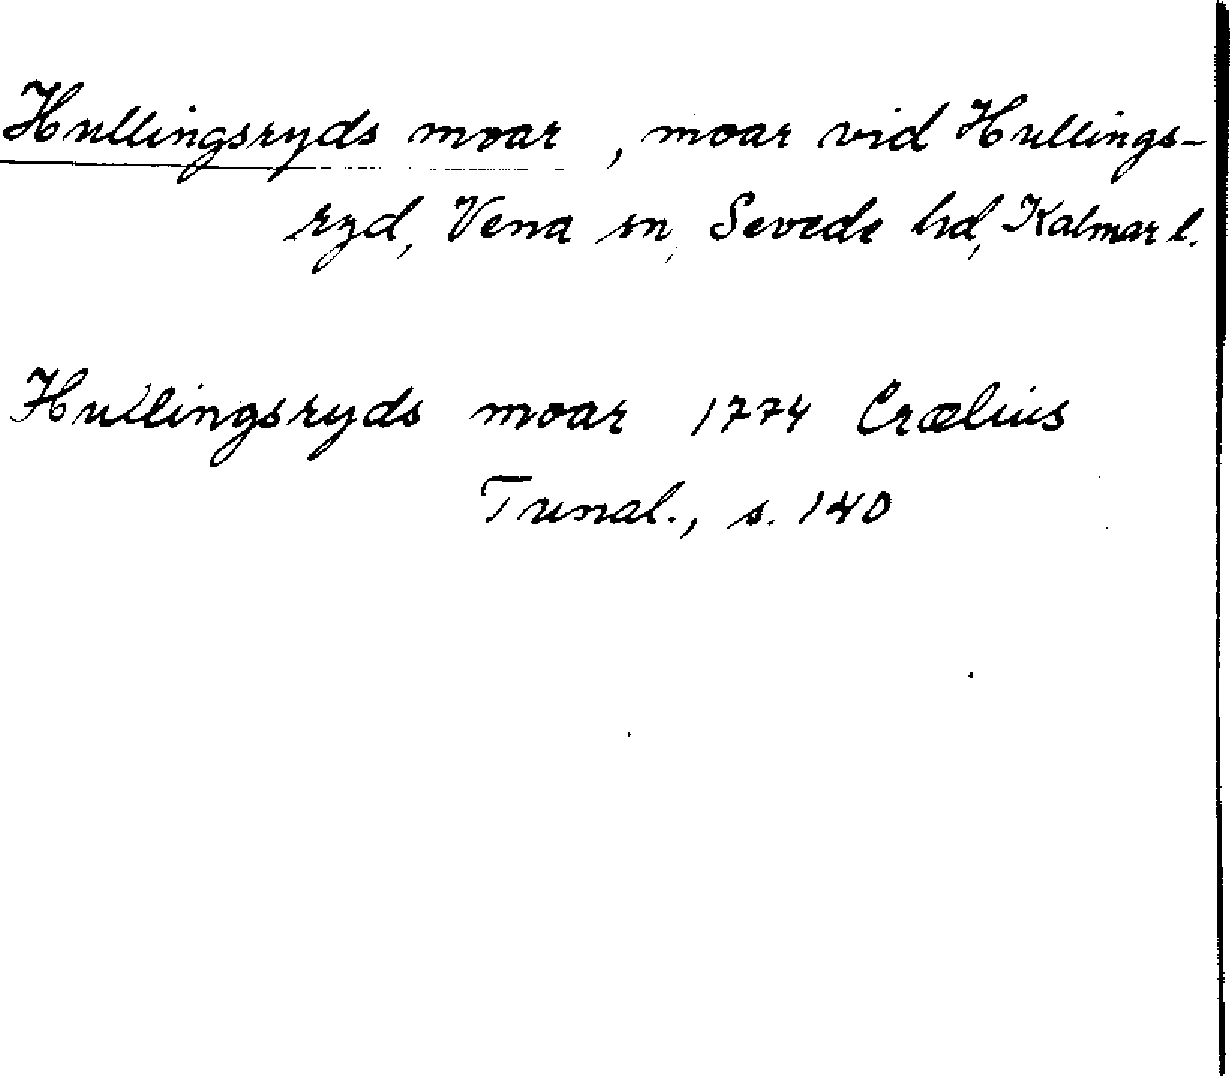 Hullingsryds moar, moar vid Hullings-
ryd, Vena sn, Sevede hd, Kalmar l.
Hullingsryds moar 1774 Crælius
Tunal., s. 140